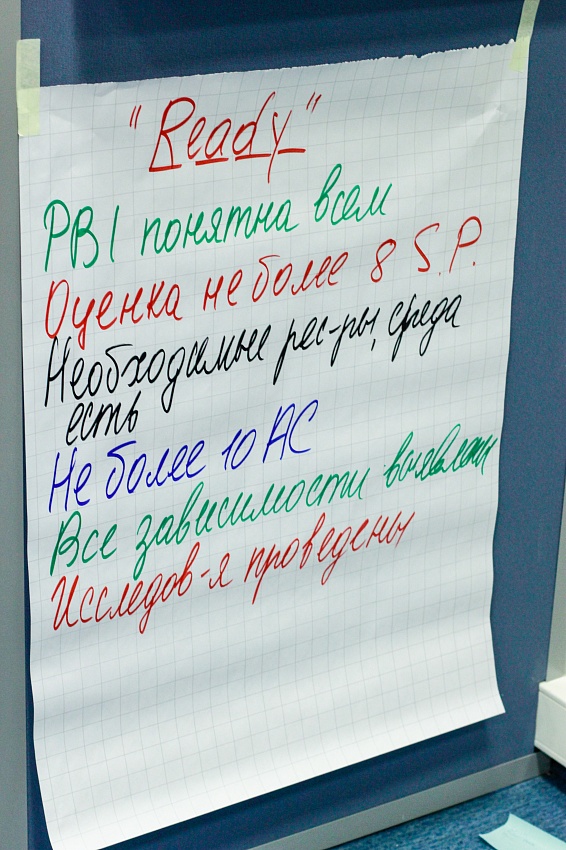 "Ready"
PBI понятна всем
Оценка не более 8 S.P.
Необходимые рес-ры, среда
есть
Не более 10 АС
Все зависимости выявлены
Исследов-я проведены